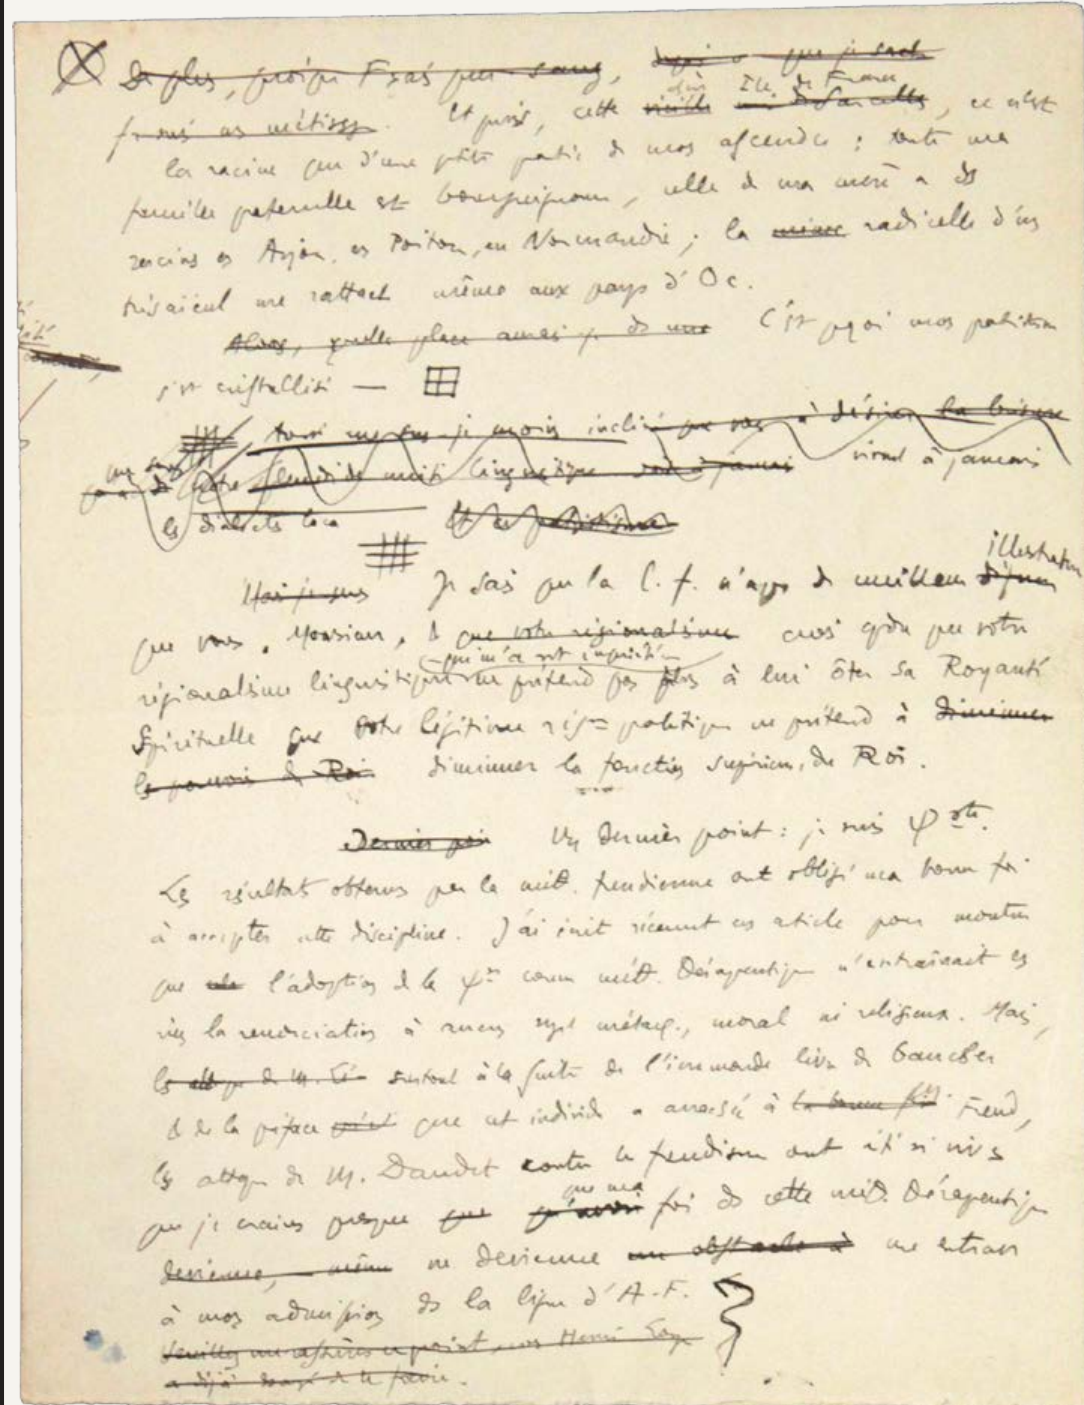 De plus, quoique Frçais pur sang,
je suis un métissé. Et puis, cette Ile de France, ce n'est
la racine que d'une ptite partie de mon ascendce : toute ma
famille paternelle est bourguignonne, celle de ma mère a des
racines en Anjou, en Poitou, en Normandie ; la radicelle d'un
trisaïeul me rattach même aux pays d'Oc.
Alors, quelle place aurai-je ds une C'est pquoi mon patriotism
s'est cristallisé —
aussi suis-je moins incliné que vous à désirer
notre splendide unité linguistique viend à jamais
les dialects loca Et ce patriotisme
Mais je sais Je sais que la l. f. n'a pas de meilleur illustrateur
que vous, Monsieur, & que votre régionalisme
régionalisme linguistique ne prétend pas plus à lui ôter sa Royauté
Spirituelle que votre légitime rég^me politique ne prétend à diminuer
le pouvoir du Roi diminuer la fonction supérieure du Roi.
Dernier poi Un dernier point : je suis ψ^ste.
Les résultats obtenus par la méth. freudienne ont obligé ma bonne foi
à accepter cette discipline. J'ai écrit récemmt un article pour montrer
que l'adoption de la ψ^se comm méth. thérapeutique n'entraînait en
rien la renonciation à aucun syst métaph., moral ni religieux. Mais,
surtout à la suite de l'immonde livre de Gaucher
& de la préface que cet individu a arrachée à la bonne foi Freud,
les attaq de M. Daudet contre le freudisme ont été si vives
que je crains presque que ma foi ds cette méth. thérapeutique
devienne, même ne devienne un obstacle à une entrave
à mon admission ds la ligue d'A.F.
Veuillez me rassurer ce point, Henri
a déjà